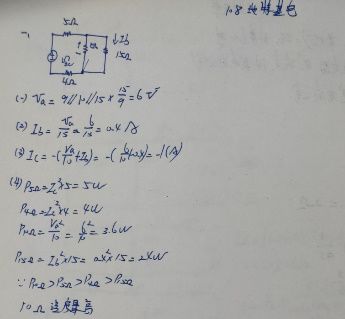 108
5Ω
↓Ib
15Ω
4Ω
(1) Va = 9//10//15 × 15/9 = 6V
(2) Ib = Va/15 = 6/15 = 0.4A
(3) Ic = -(Va/10 + Ib) = -(6/10 + 0.4) = -1(A)
(4) P5Ω = Ic²×5 = 5W
P4Ω = Ic²×4 = 4W
P10Ω = Va²/10 = 6²/10 = 3.6W
P15Ω = Ib²×15 = 0.4²×15 = 2.4W
∵ P10Ω > P5Ω > P4Ω > P15Ω
10Ω